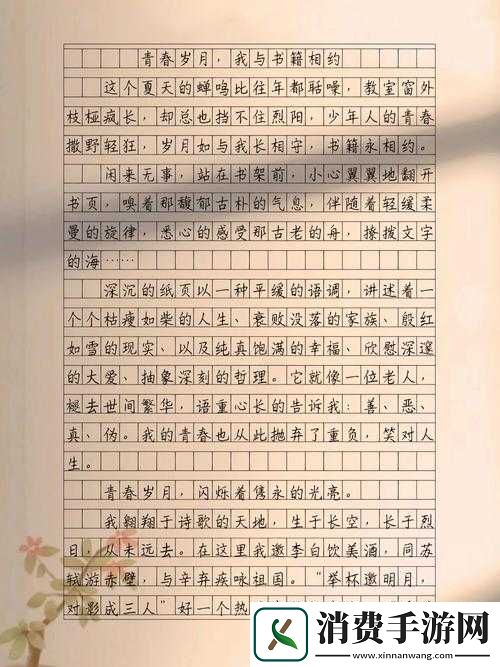 青春岁月，我与书籍相约
这个夏天的蝉鸣比往年都聒噪，教室窗外
枝桠疯长，却总也挡不住烈阳，少年人的青春
撒野轻狂，岁月如与我长相守，书籍永相约。
闲来无事，站在书架前，小心翼翼地翻开
书页，嗅着那馥郁古朴的气息，伴随着轻缓柔
曼的旋律，悉心的感受那古老的舟，撩拨文字
的海……
深沉的纸页以一种平缓的语调，讲述着一
个个枯瘦如柴的人生、衰败没落的家族、殷红
如雪的现实、以及纯真饱满的幸福、欣慰深邃
的大爱、抽象深刻的哲理。它就像一位老人，
褪去世间繁华，语重心长的告诉我：善、恶、
真、伪。我的青春也从此抛弃了重负，笑对人
生。
青春岁月，闪烁着隽永的光亮。
我翱翔于诗歌的天地，生于长空，长于烈
日，从未远去。在这里我邀李白饮美酒，同苏
轼游赤壁，与辛弃疾咏祖国。“举杯邀明月，
对影成三人”好一个热
消费手游网
www.xinnanwang.com